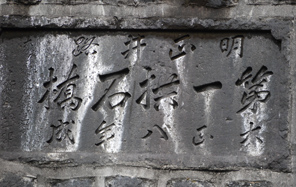 明正井路
第一拱石橋
大正八年